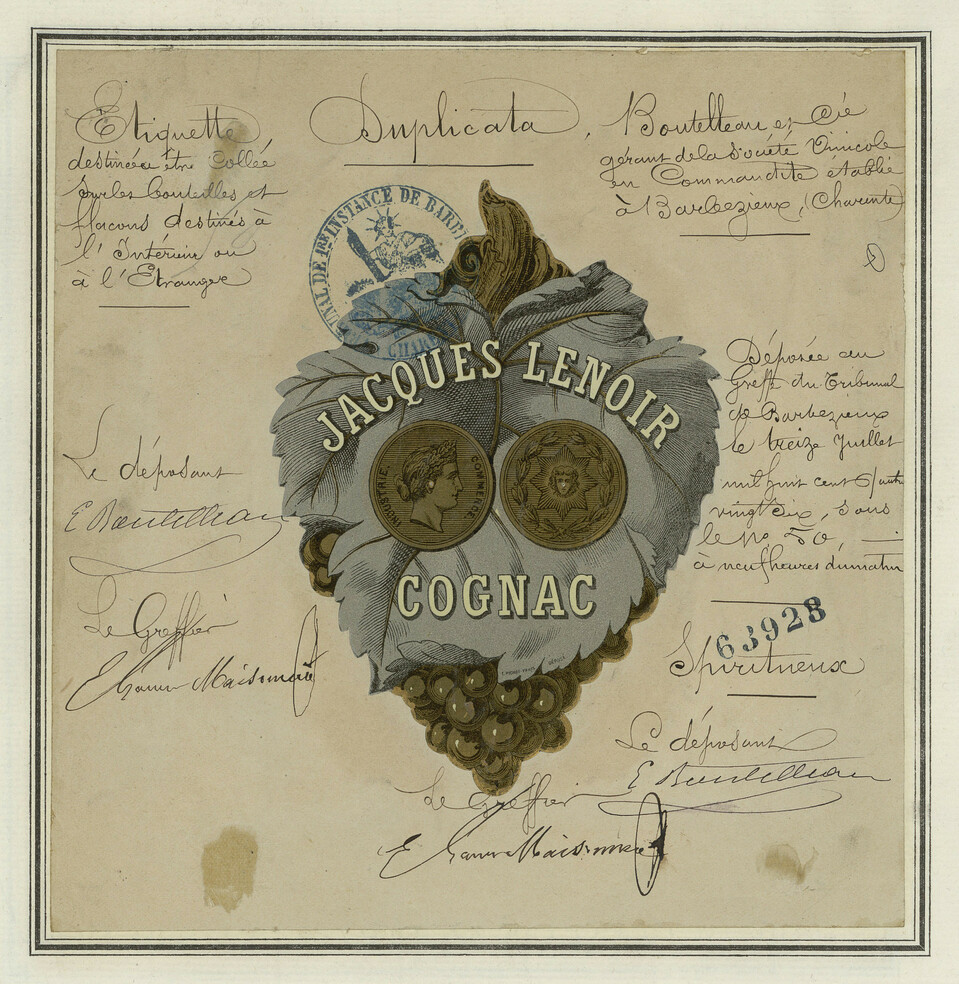 Etiquette
destinée à être collée
sur les bouteilles et
flacons destinés à
l'Intérieur ou
à l'Etranger
Duplicata
Boutelleau et Cie
gérant de la Société Vinicole
en Commandite établie
à Barbezieux, (Charente)
UNAL DE 1ERE INSTANCE DE BARB
CHARE
JACQUES LENOIR
INDUSTRIE
COMMERCE
COGNAC
Déposée au
Greffe du Tribunal
de Barbezieux
le treize Juillet
mil huit cent quatre
vingt six, sous
le No 50,
à neuf heures du matin
63928
Spiritueux
Le déposant
E Boutelleau
Le Greffier
Le déposant
E Boutelleau
Le Greffier